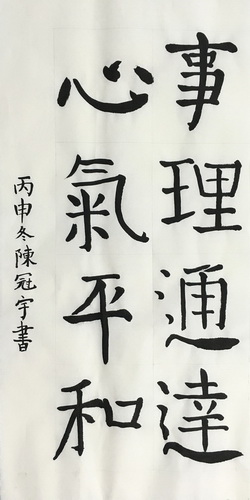 事理通達
心氣平和
丙申冬陳冠宇書